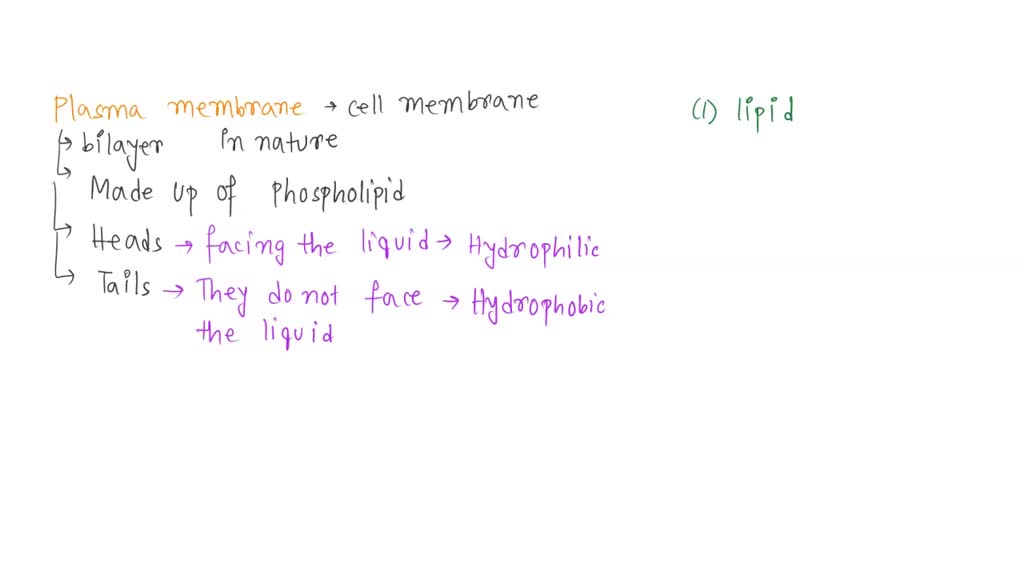 Plasma membrane → cell membrane
(1) lipid
↳ bilayer in nature
↳ Made up of Phospholipid
↳ Heads → facing the liquid → Hydrophilic
↳ Tails → They do not face → Hydrophobic
the liquid